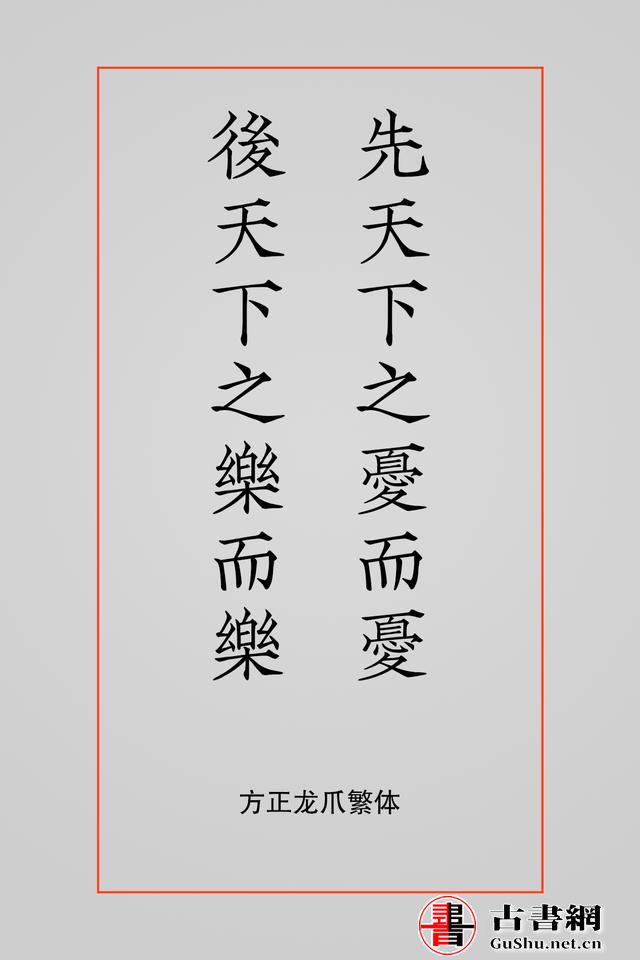 先天下之憂而憂
後天下之樂而樂
方正龙爪繁体
書
古書網
GuShu.net.cn